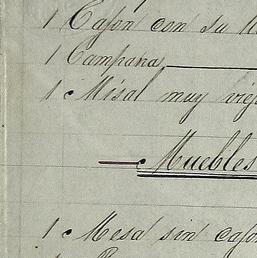 1 Cajon con su
1 Campana
1 Misal muy viejo
Muebles
1 Mesa sin cajon
1